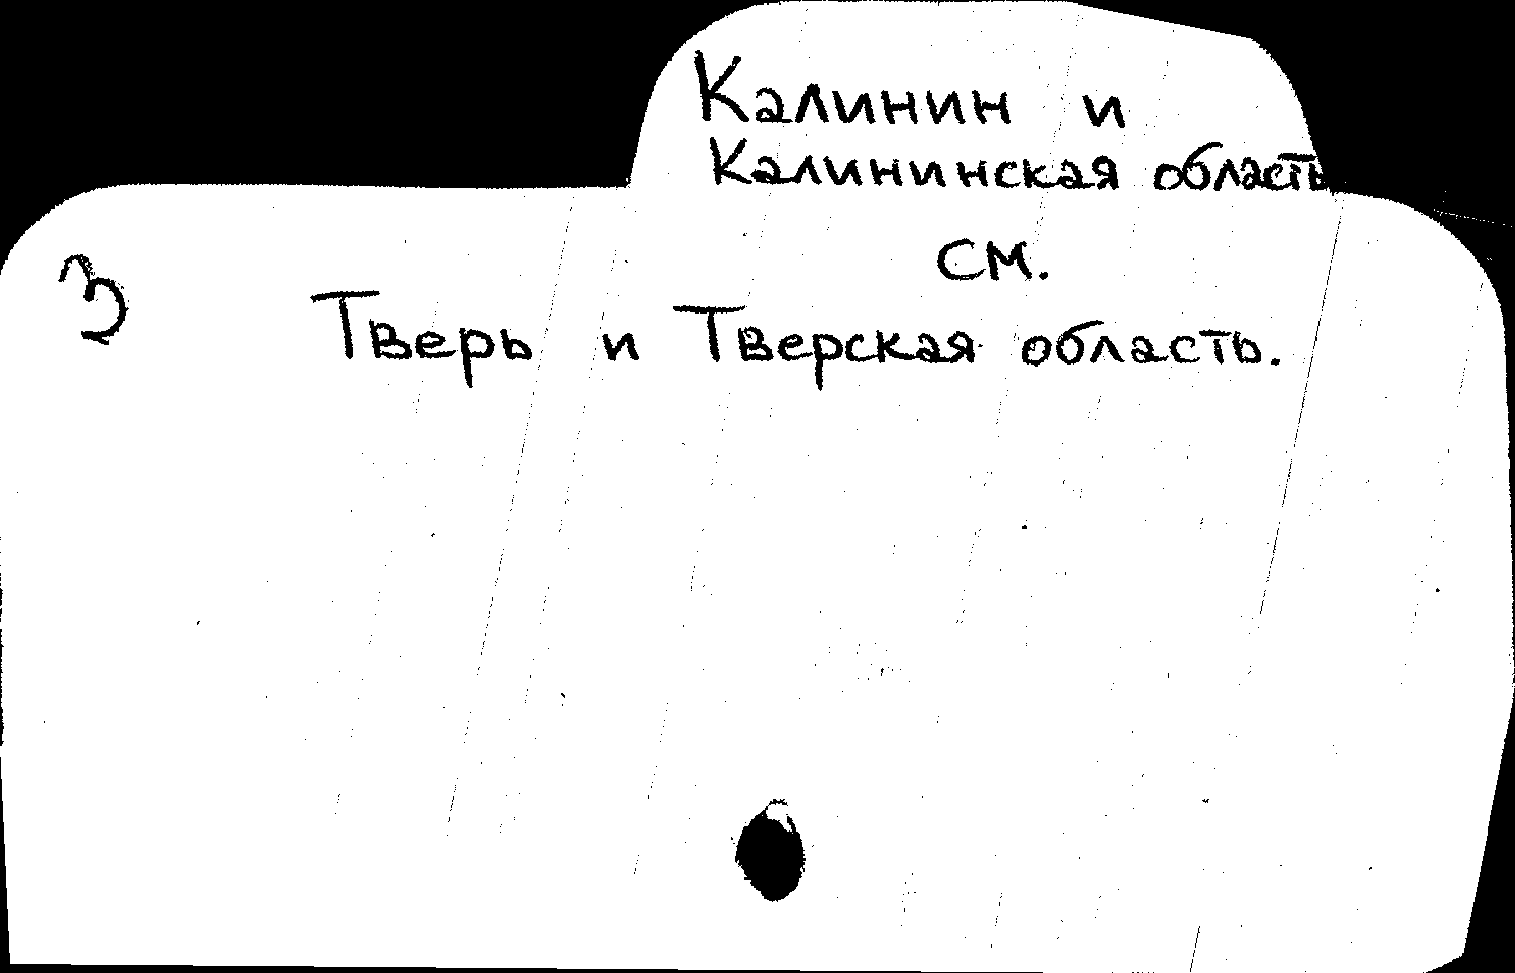 Калинин и
Калининская область
см.
3 Тверь и Тверская область.